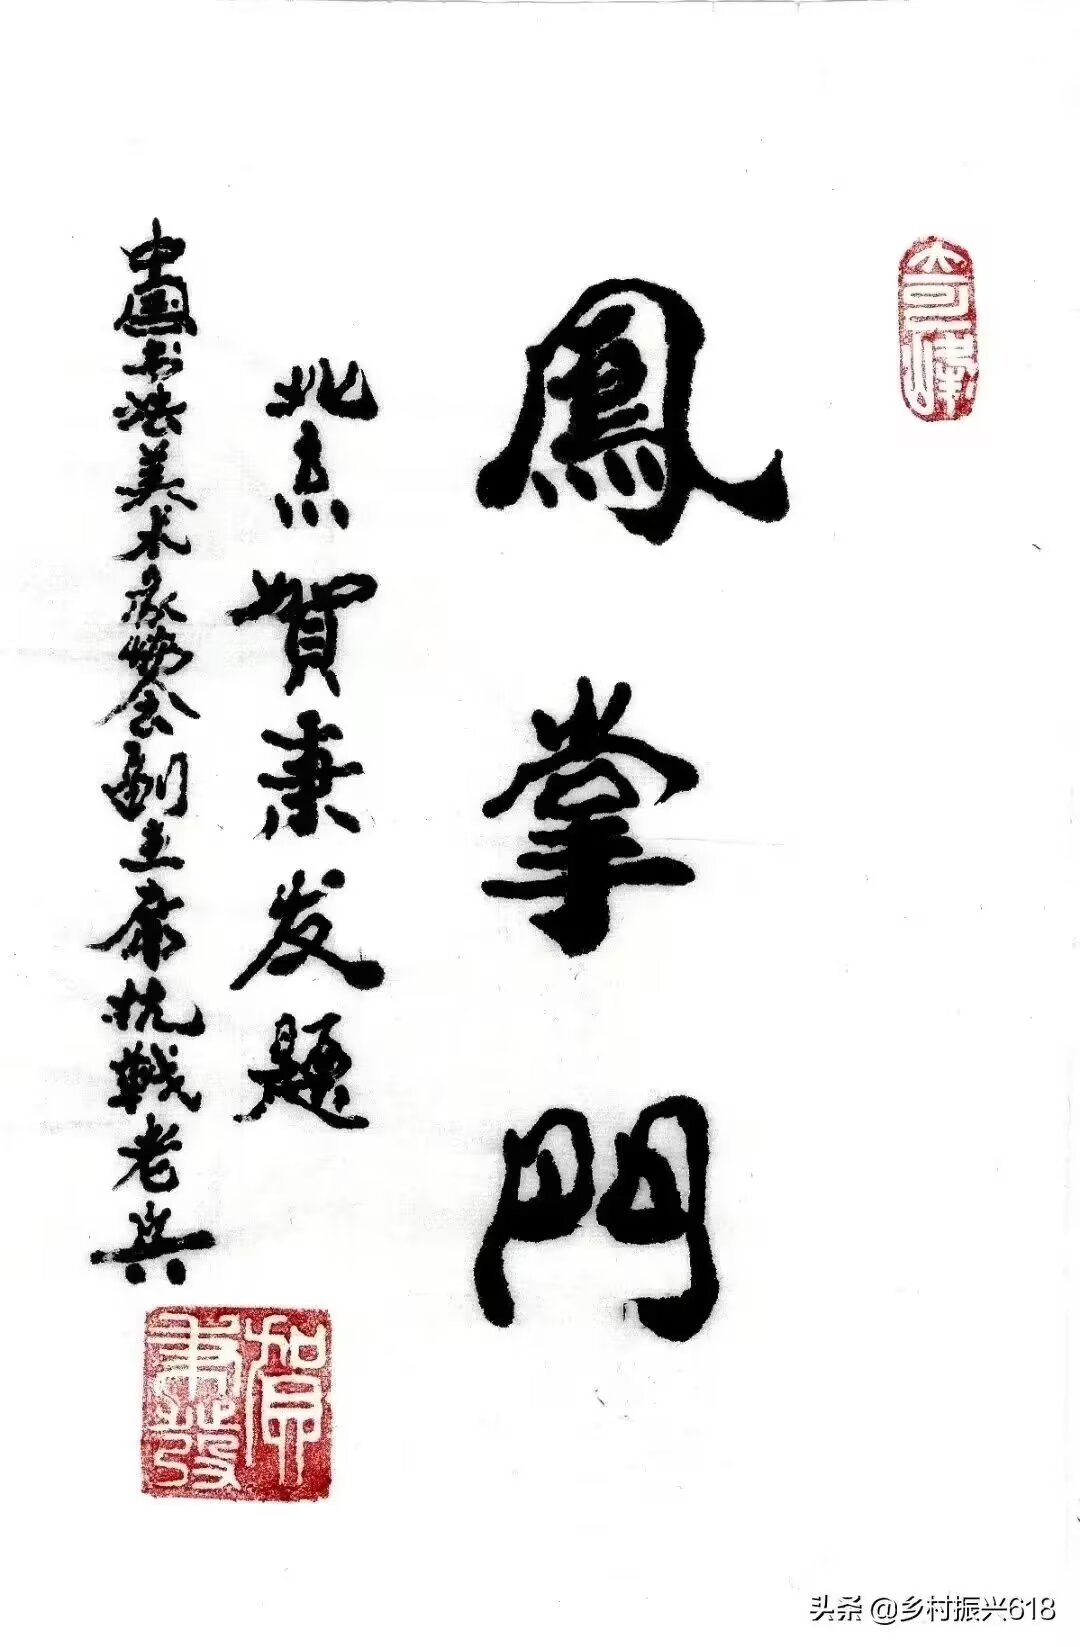 奇峰
鳳掌門
北京賀秉发題
中國书法美术家協会副主席抗戰老兵
賀秉發
头条 @乡村振兴618